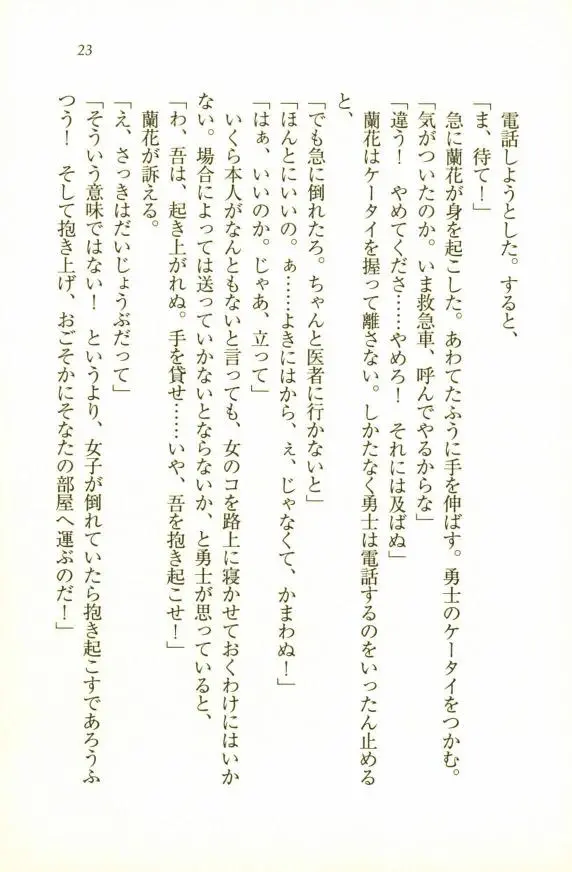 23
電話しようとした。すると、
「ま、待て！」
急に蘭花が身を起こした。あわてたふうに手を伸ばす。勇士のケータイをつかむ。
「気がついたのか。いま救急車、呼んでやるからな」
「違う！　やめてくださ……やめろ！　それには及ばぬ」
蘭花はケータイを握って離さない。しかたなく勇士は電話するのをいったん止める
と、
「でも急に倒れたろ。ちゃんと医者に行かないと」
「ほんとにいいの。ぁ……よきにはから、ぇ、じゃなくて、かまわぬ！」
「はぁ、いいのか。じゃあ、立って」
いくら本人がなんともないと言っても、女のコを路上に寝かせておくわけにはいか
ない。場合によっては送っていかないとならないか、と勇士が思っていると、
「わ、吾は、起き上がれぬ。手を貸せ……いや、吾を抱き起こせ！」
蘭花が訴える。
「え、さっきはだいじょうぶだって」
「そういう意味ではない！　というより、女子が倒れていたら抱き起こすであろうふ
つう！　そして抱き上げ、おごそかにそなたの部屋へ運ぶのだ！」